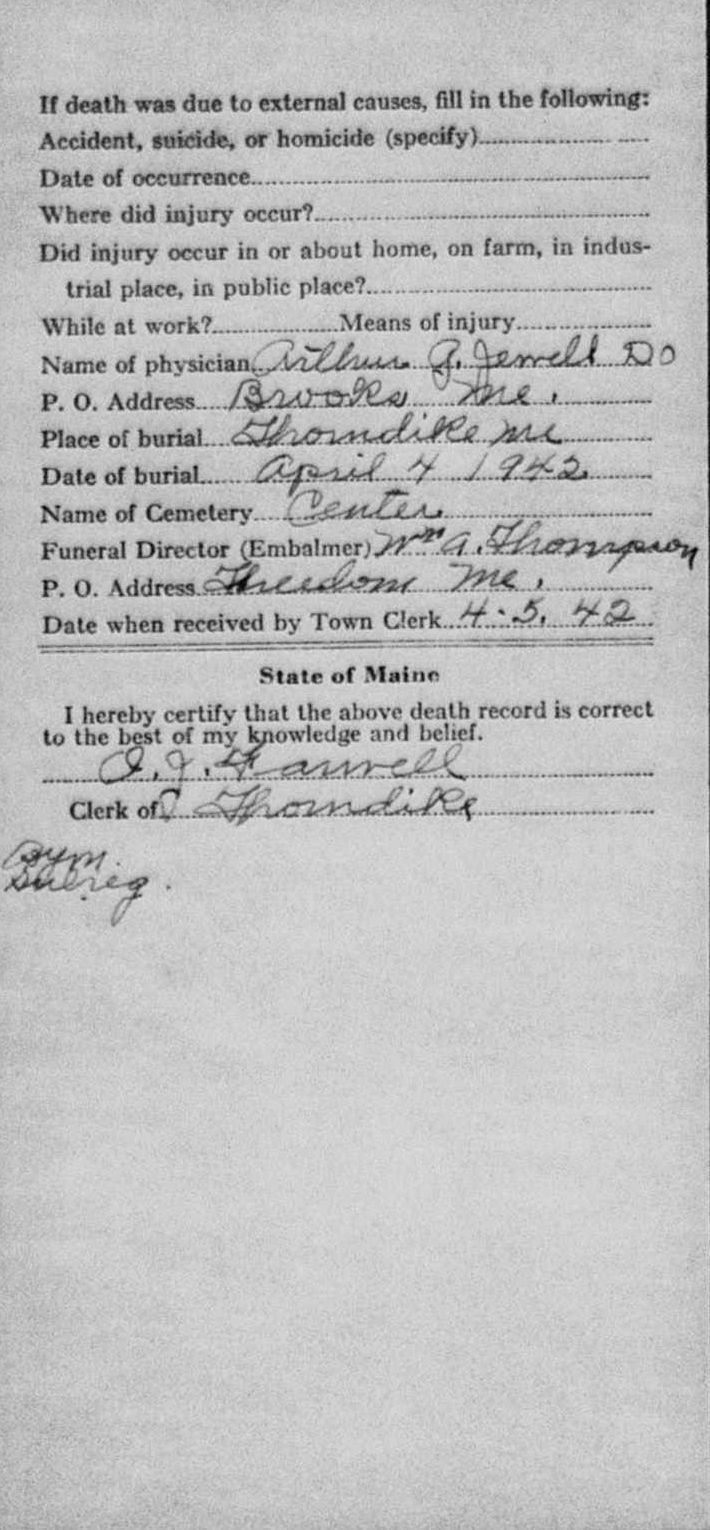 If death was due to external causes, fill in the following:
Accident, suicide, or homicide (specify)
Date of occurrence
Where did injury occur?
Did injury occur in or about home, on farm, in indus-
trial place, in public place?
While at work? Means of injury
Name of physician Arthur G. Jewell DO
P. O. Address Brooks Me.
Place of burial Thorndike Me
Date of burial April 4 1942
Name of Cemetery Center
Funeral Director (Embalmer) Wm A. Thompson
P. O. Address Freedom Me.
Date when received by Town Clerk 4-5. 42
State of Maine
I hereby certify that the above death record is correct
to the best of my knowledge and belief.
Farwell
Clerk of Thorndike